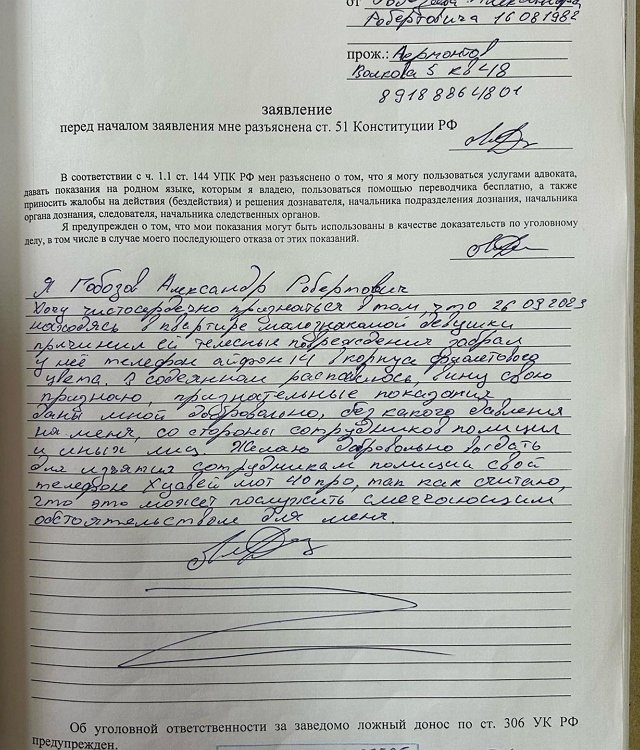 от
Робертовича 16081982
прож.: Лермонтов
Волкова 5 кв 48
89188864801
заявление
перед началом заявления мне разъяснена ст. 51 Конституции РФ
В соответствии с ч. 1.1 ст. 144 УПК РФ мен разъяснено о том, что я могу пользоваться услугами адвоката,
давать показания на родном языке, которым я владею, пользоваться помощью переводчика бесплатно, а также
приносить жалобы на действия (бездействия) и решения дознавателя, начальника подразделения дознания, начальника
органа дознания, следователя, начальника следственных органов.
Я предупрежден о том, что мои показания могут быть использованы в качестве доказательств по уголовному
делу, в том числе в случае моего последующего отказа от этих показаний.
Я Гобозов Александр Робертович
Хочу чистосердечно признаться в том, что 26 09 2023
находясь в квартире малознакомой девушки
причинил ей телесные повреждения забрал
у неё телефон айфон 14 в корпусе фиолетового
цвета. В содеянном раскаиваюсь, вину свою
признаю, признательные показания
даны мной добровольно, без какого давления
на меня, со стороны сотрудников полиции
и иных лиц. Желаю добровольно выдать
для изъятия сотрудникам полиции свой
телефон Хуавей мот 40 про, так как считаю,
что это может послужить смягчающим
обстоятельством для меня.
Об уголовной ответственности за заведомо ложный донос по ст. 306 УК РФ
предупрежден.